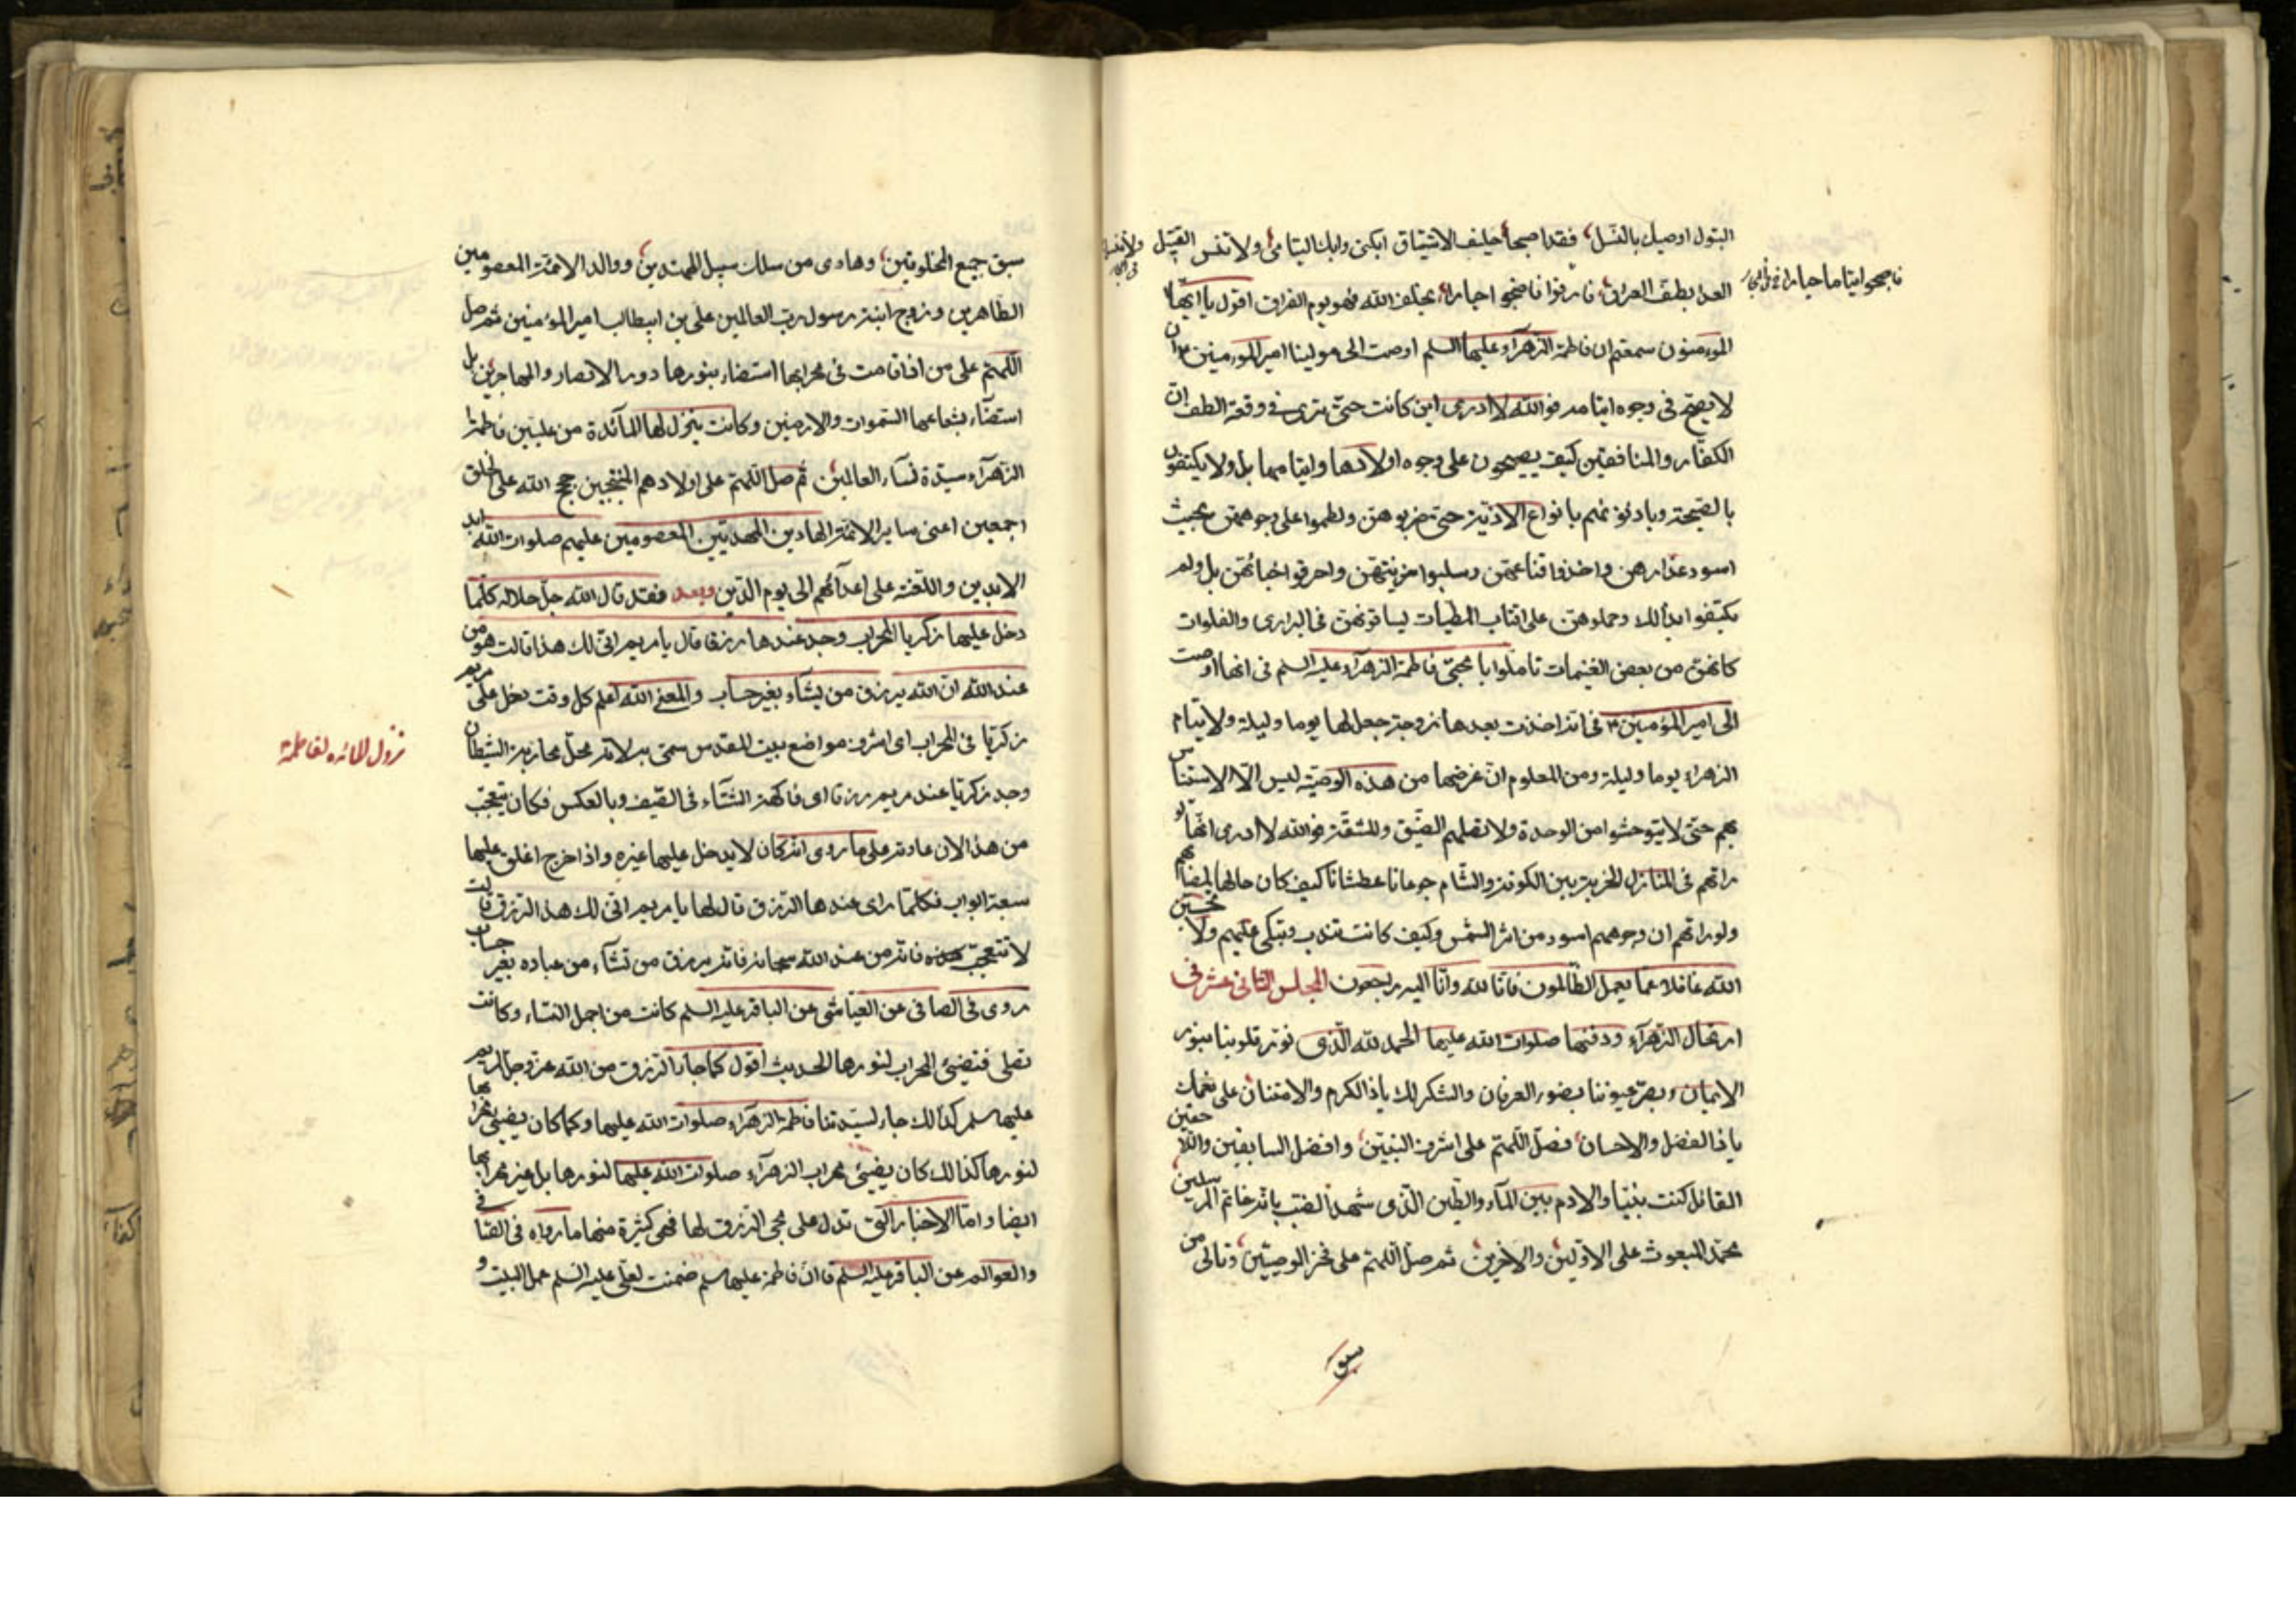 البتول اوصيك بالنسل، فقد اصبحا حليف الاشتياق ابكنى وابك اليتامى ولا تنس القتيل
العدا بطف العراق، فارقوا فاضحوا حيارا، بحلف الله فهو يوم الفراق اقول يا ايها
فاصبحوا ايتاما حيارا
المومنون سمعتم ان فاطمة الزهرآء عليها السلم اوصت الى مولينا امير المومنين ان
لا يصيح فى وجوه ايتامه فو الله لا ادرى اين كانت حتى ترى فى وقعة الطف ان
الكفار والمنافقين كيف يصيحون على وجوه اولادها وايتامها بل ولا يكتفون
بالصيحة وباد نوع الاذية حتى ضربوهن ولطموا على وجوههن بحيث
اسود عذارهن واخذوا قناعهن وسلبوا مزينتهن واحرقوا اخبائهن بل ولم
يكتفوا بذالك وحملوهن على اقتاب المطيات يساقونهن فى البرارى والفلوات
كانهن من بعض الغنيمات تاملوا يا محبى فاطمة الزهرآء عليه السلم فى انها اوصت
الى امير المؤمنين فى انه اخذت بعدها زوجة جعل لها يوما وليلة ولايتام
الزهراء يوما وليلة ومن المعلوم ان غرضها من هذه الوصية ليس الا الاستيناس
بهم حتى لا يتوحشوا من الوحدة ولا تصلهم الضيق والمشقة فو الله لا ادرى انها لو
راتهم فى المنازل الخربة بين الكوفة والشام جوعانا عطشانا كيف كان حالها ايضا
ولو راتهم ان وجوههم اسود من اثر الشمس وكيف كانت تندب وتبكى عليهم ولا تحسبن
الله غافلا عما يعمل الظالمون فانا لله وانا اليه راجعون المجلس الثانى عشر فى
ارتحال الزهرآء ودفنها صلوات الله عليها الحمد لله الذى نور قلوبنا بنور
الايمان، وبصر عيوننا بضور العرفان والشكر لك ياذا الكرم والامتنان على نعمك
ياذا الفضل والاحسان، فصل اللهم على اشرف النبيين، وافضل السابقين واللاحقين
القائل كنت نبيا والادم بين المآء والطين الذى شهد الضب بانه خاتم المرسلين
محمد المبعوث على الاولين والاخرين، ثم صل اللهم على فخر الوصيين، وتالى من
سبق
سبق جميع المخلوقين، وهادى من سلك سبيل المهتدين، ووالد الائمة المعصومين
الطاهرين وزوج ابنة رسول رب العالمين على بن ابيطالب امير المؤمنين ثم صل
اللهم على من اذا قامت فى محرابها استضاء بنورها دور الانصار والمهاجرين بل
استضآء بشعاعها السموات والارضين وكانت ينزل لها المآئدة من عليين فاطمة
الزهرآء سيدة نسآء العالمين، ثم صل اللهم على اولادهم المنتجبين حجج الله على الخلق
اجمعين اعنى ساير الائمة الهادين المهديين المعصومين عليهم صلوات الله ابد
الابدين واللعنة على اعدآئهم الى يوم الدين وبعد فقد قال الله جل جلاله كلما
دخل عليها زكريا المحراب وجد عندها رزقا قال يا مريم انى لك هذا قالت هو من
عند الله ان الله يرزق من يشآء بغير حساب والمعنى الله اعلم كل وقت دخل على مريم
زكريا فى المحراب اى اشرف مواضع بيت المقدس سمى به لانه محل محاربة الشيطان
نزول المائده لفاطمة
وجد زكريا عند مريم رزقا اى فاكهة الشتآء فى الصيف وبالعكس فكان يتعجب
من هذا لان عادته على ما روى انه كان لا يدخل عليها غيره واذا خرج اغلق عليها
سبعة ابواب فكلما راى عندها الرزق قال لها يا مريم انى لك هذا الرزق قالت
لا تتعجب فانه من عند الله سبحانه فانه يرزق من تشآء من عباده بغير حساب
روى فى الصافى عن العياشى عن الباقر عليه السلم كانت من اجمل النساء وكانت
تصلى فتضيئ المحراب لنورها الحديث اقول كما جاء الرزق من الله عز وجل لمريم
عليها سلم كذالك جاء لسيدتنا فاطمة الزهرآء صلوات الله عليها وكما كان يضيئ محرابها
لنورها كذالك كان يضيئ محراب الزهرآء صلوات الله عليها لنورها بل غير محرابها
ايضا واما الاخبار التى تدل على مجئ الرزق لها فهى كثيرة منها ما رواه فى الصافى
والعوالم عن الباقر عليه السلم قال ان فاطمة عليها سلم ضمنت لعلى عليه السلم عمل البيت و